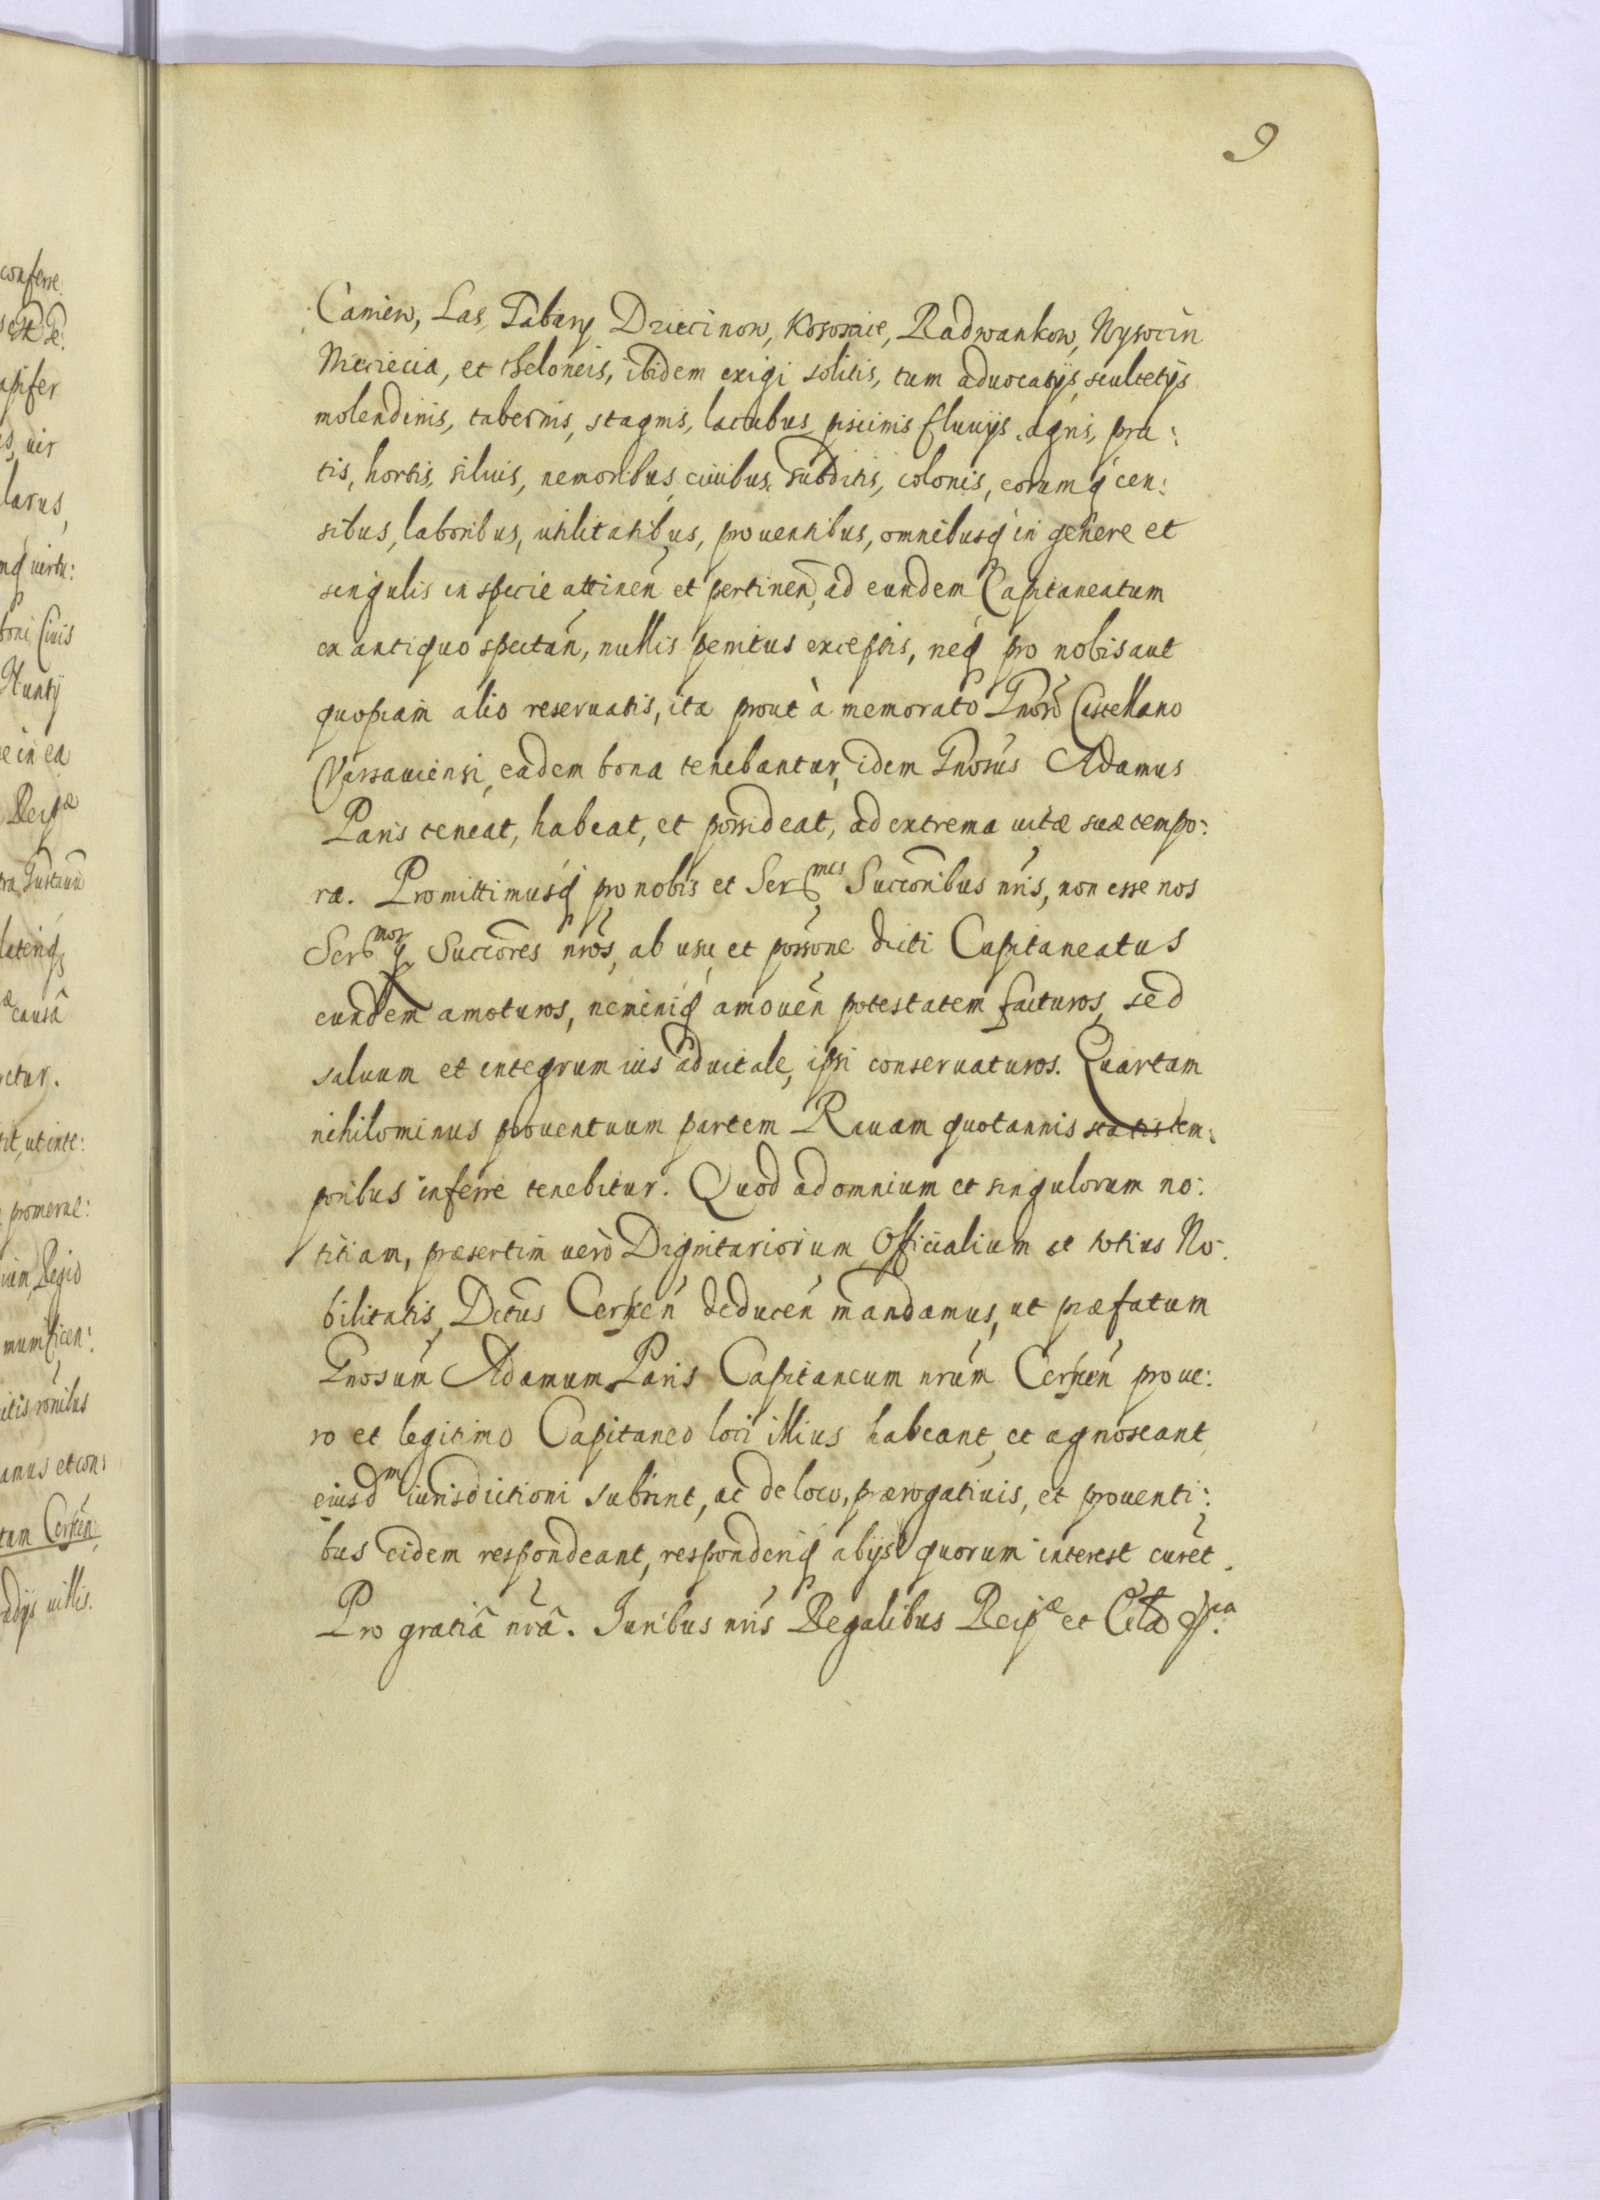 9
Camień, Las, Tabary Dziecinow, Kosomie, Radwankow, Wysocin
Nieciecia, et theloneis, ibidem exigi solitis, tum aduocatijs, scultetijs
molendinis, tabernis, stagnis, lacubus, piscinis fluuijs, agris, pra:
tis, hortis, siluis, nemoribus, ciuibus, subditis, colonis, eorumq́ cen:
sibus, laboribus, vtilitatibus, prouentibus, omnibusq́ in genere et
singulis in specie attineñ et pertineñ, ad eundem Capitaneatum
ex antiquo spectañ, nullis penitus exceptis, neq́ pro nobis aut
quopiam alio reseruatis, ita prout à memorato Gnoso Castellano
Varsauiensi, eadem bona tenebantur, idem Gnosus Adamus
Paris teneat, habeat, et possideat, ad extrema vitæ suæ tempo:
ra. Promittimusq́ pro nobis et Ser^mis Succoribus nris, non esse nos
Ser^mosq́ Succores nros, ab usu et possone dicti Capitaneatus
eundem amoturos, neminiq́ amoueñ potestatem facturos, sed
saluum et integrum ius aduitale, ipsi conseruaturos. Quartam
nihilominus prouentuum partem Rauam quotannis statis tem:
poribus inferre tenebitur. Quod ad omnium et singulorum no:
titiam, præsertim uero Dignitariorum Officialium et totius No:
bilitatis, Dctus Cerscen deduceñ mandamus, ut præfatum
Gnosum Adamum Paris Capitaneum nrum Cersceñ pro ue:
ro et legitimo Capitaneo loci illius habeant, et agnoscant
eiusd^m iurisdictioni subsint, ac de loco, prærogatiuis, et prouenti:
bus eidem respondeant, responderiq́ ab ijs quorum interest curet.
Pro gratiâ nrâ. Juribus nris Regalibus Reip^æ et Ecclæ